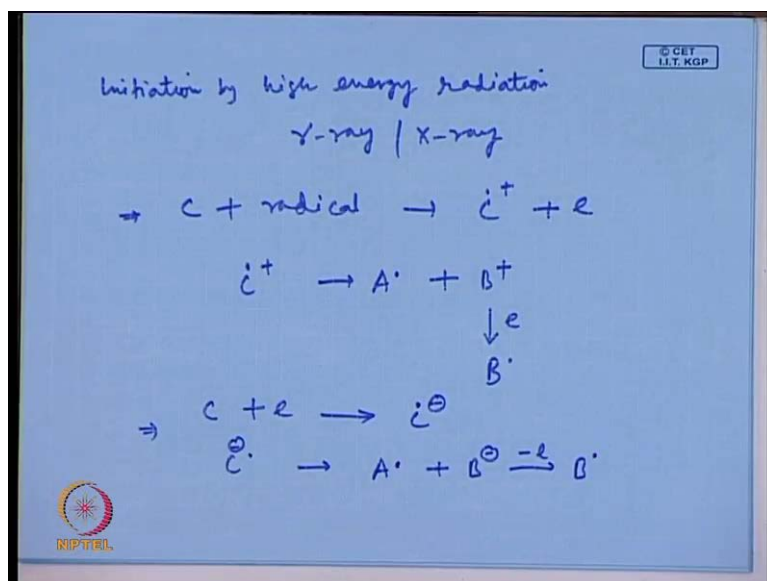 © CET
I.I.T. KGP
Initiation by high energy radiation
γ-ray / X-ray
⇒ C + radical → Ċ⁺ + e
Ċ⁺ → A· + B⁺
↓e
B·
⇒ C + e → Ċ⊖
C⊖· → A· + B⊖ –e→ B·
NPTEL